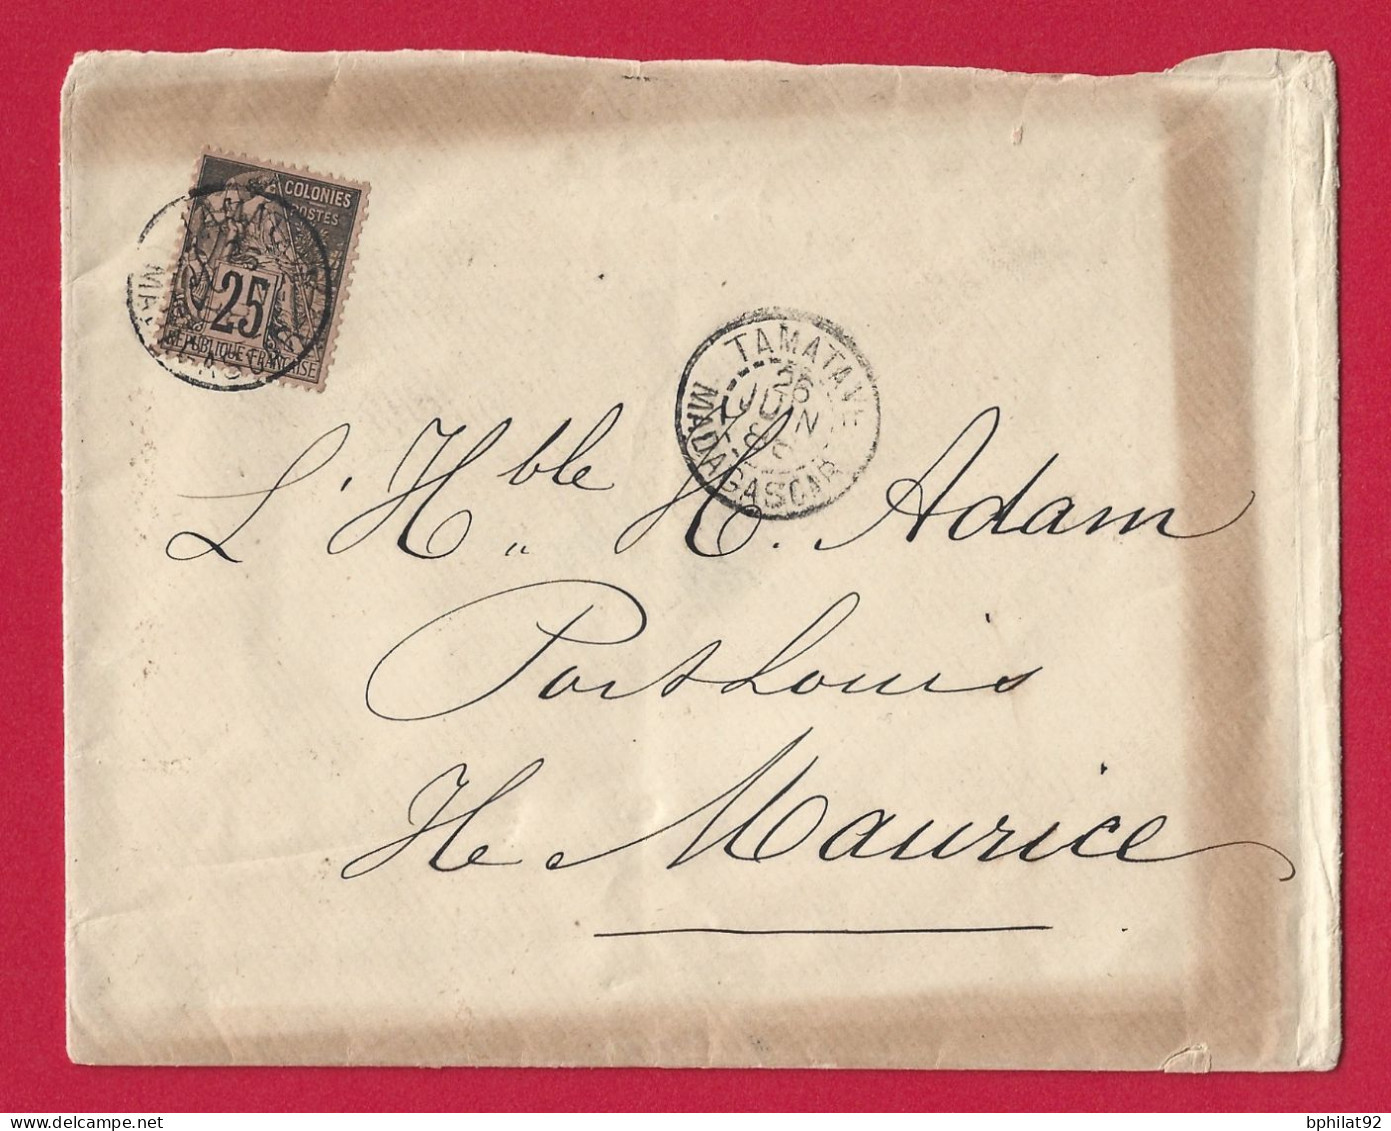 COLONIES
POSTES
25
REPUBLIQUE FRANÇAISE
TAMATAVE
26
JUIN
MADAGASCAR
L'Hble H. Adam
Port Louis
Ile Maurice
bphilat92